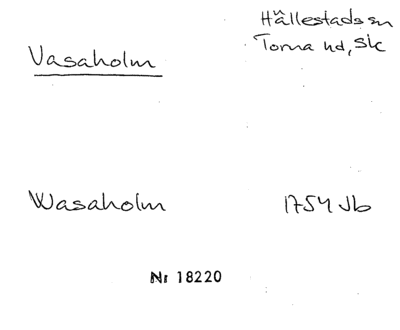 Vasaholm
Hällestads sn
Torna hd, Sk
Wasaholm
1754 Jb
Nr 18220